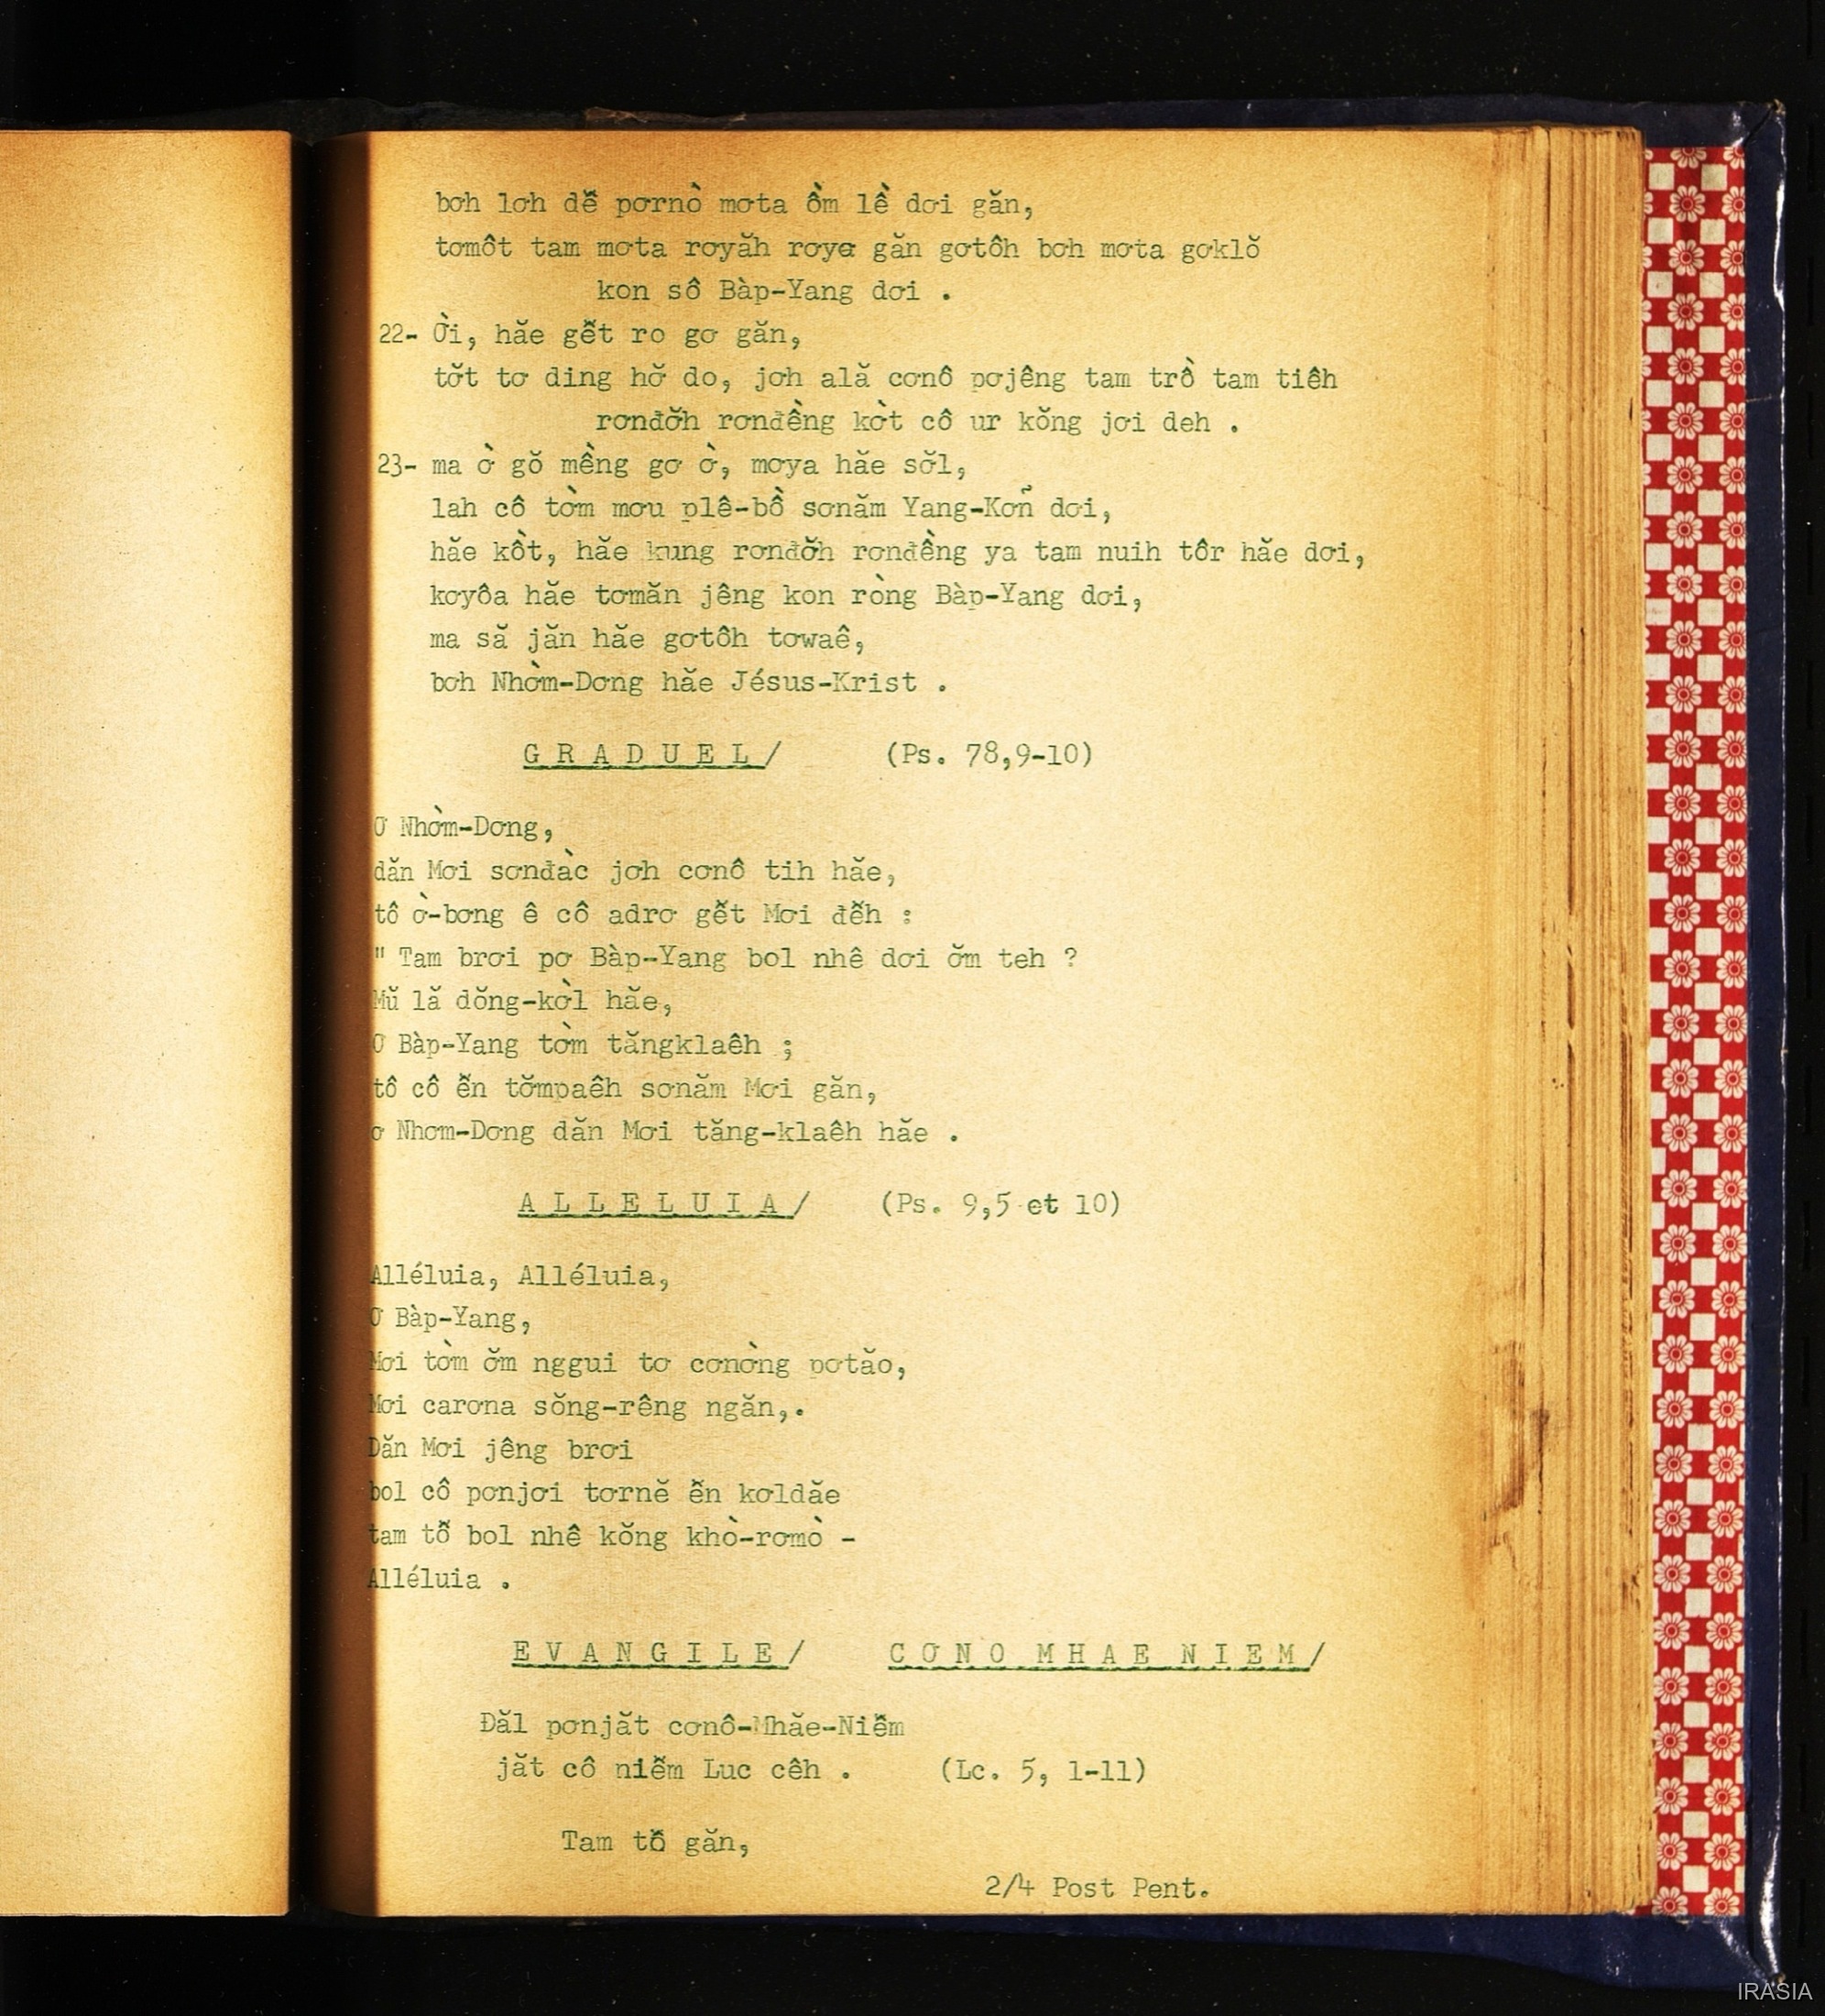 bơh lơh dễ pơrnồ mơta ồm lề dơi găn,
tơmôt tam mơta rơyăh rơya găn gơtôh bơh mơta gơklŏ
kon sô Bàp-Yang dơi .
22- Ời, hăe gết ro gơ găn,
tơ̆t tơ ding hơ̆ do, jơh ală cơnô pơjêng tam trồ tam tiêh
rơnđơ̆h rơnđềng kờt cô ur kŏng jơi deh .
23- ma ờ gŏ mềng gơ ờ, mơya hăe sơ̆l,
lah cô tờm mơu plê-bồ sơnăm Yang-Kon̉ dơi,
hăe kồt, hăe kung rơnđơ̆h rơnđềng ya tam nuih tôr hăe dơi,
kơyôa hăe tơmăn jêng kon ròng Bàp-Yang dơi,
ma să jăn hăe gơtôh tơwaê,
bơh Nhờm-Dơng hăe Jésus-Krist .
G R A D U E L / (Ps. 78,9-10)
Ơ Nhờm-Dơng,
dăn Mơi sơnđàc jơh cơnô tih hăe,
tô ờ-bơng ê cô adrơ gết Mơi đễh :
" Tam brơi pơ Bàp-Yang bol nhê dơi ơ̆m teh ?
Mŭ lă dŏng-kờl hăe,
Ơ Bàp-Yang tờm tăngklaêh ;
tô cô ễn tơ̆mpaêh sơnăm Mơi găn,
ơ Nhơm-Dơng dăn Mơi tăng-klaêh hăe .
A L L E L U I A / (Ps. 9,5 et 10)
Alléluia, Alléluia,
Ơ Bàp-Yang,
Mơi tờm ơ̆m nggui tơ cơnờng pơtăo,
Mơi carơna sŏng-rêng ngăn,.
Dăn Mơi jêng brơi
bol cô pơnjơi tơrnĕ ễn kơldăe
tam tỗ bol nhê kŏng khò-rơmò -
Alléluia .
E V A N G I L E / C Ơ N O M H A E N I E M /
Đăl pơnjăt cơnô-Mhăe-Niễm
jăt cô niễm Luc cêh . (Lc. 5, 1-11)
Tam tỗ găn,
2/4 Post Pent.
IRASIA